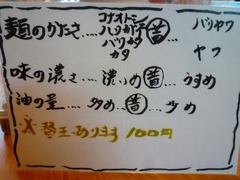 コナオトシ
麺のかたさ‥‥ハリガネ 昔‥‥ バリヤワ
バリカタ
カタ ヤワ
味の濃さ‥‥濃いめ 昔‥‥うすめ
油の量‥‥多め 昔‥‥少め
※替玉あります 100円